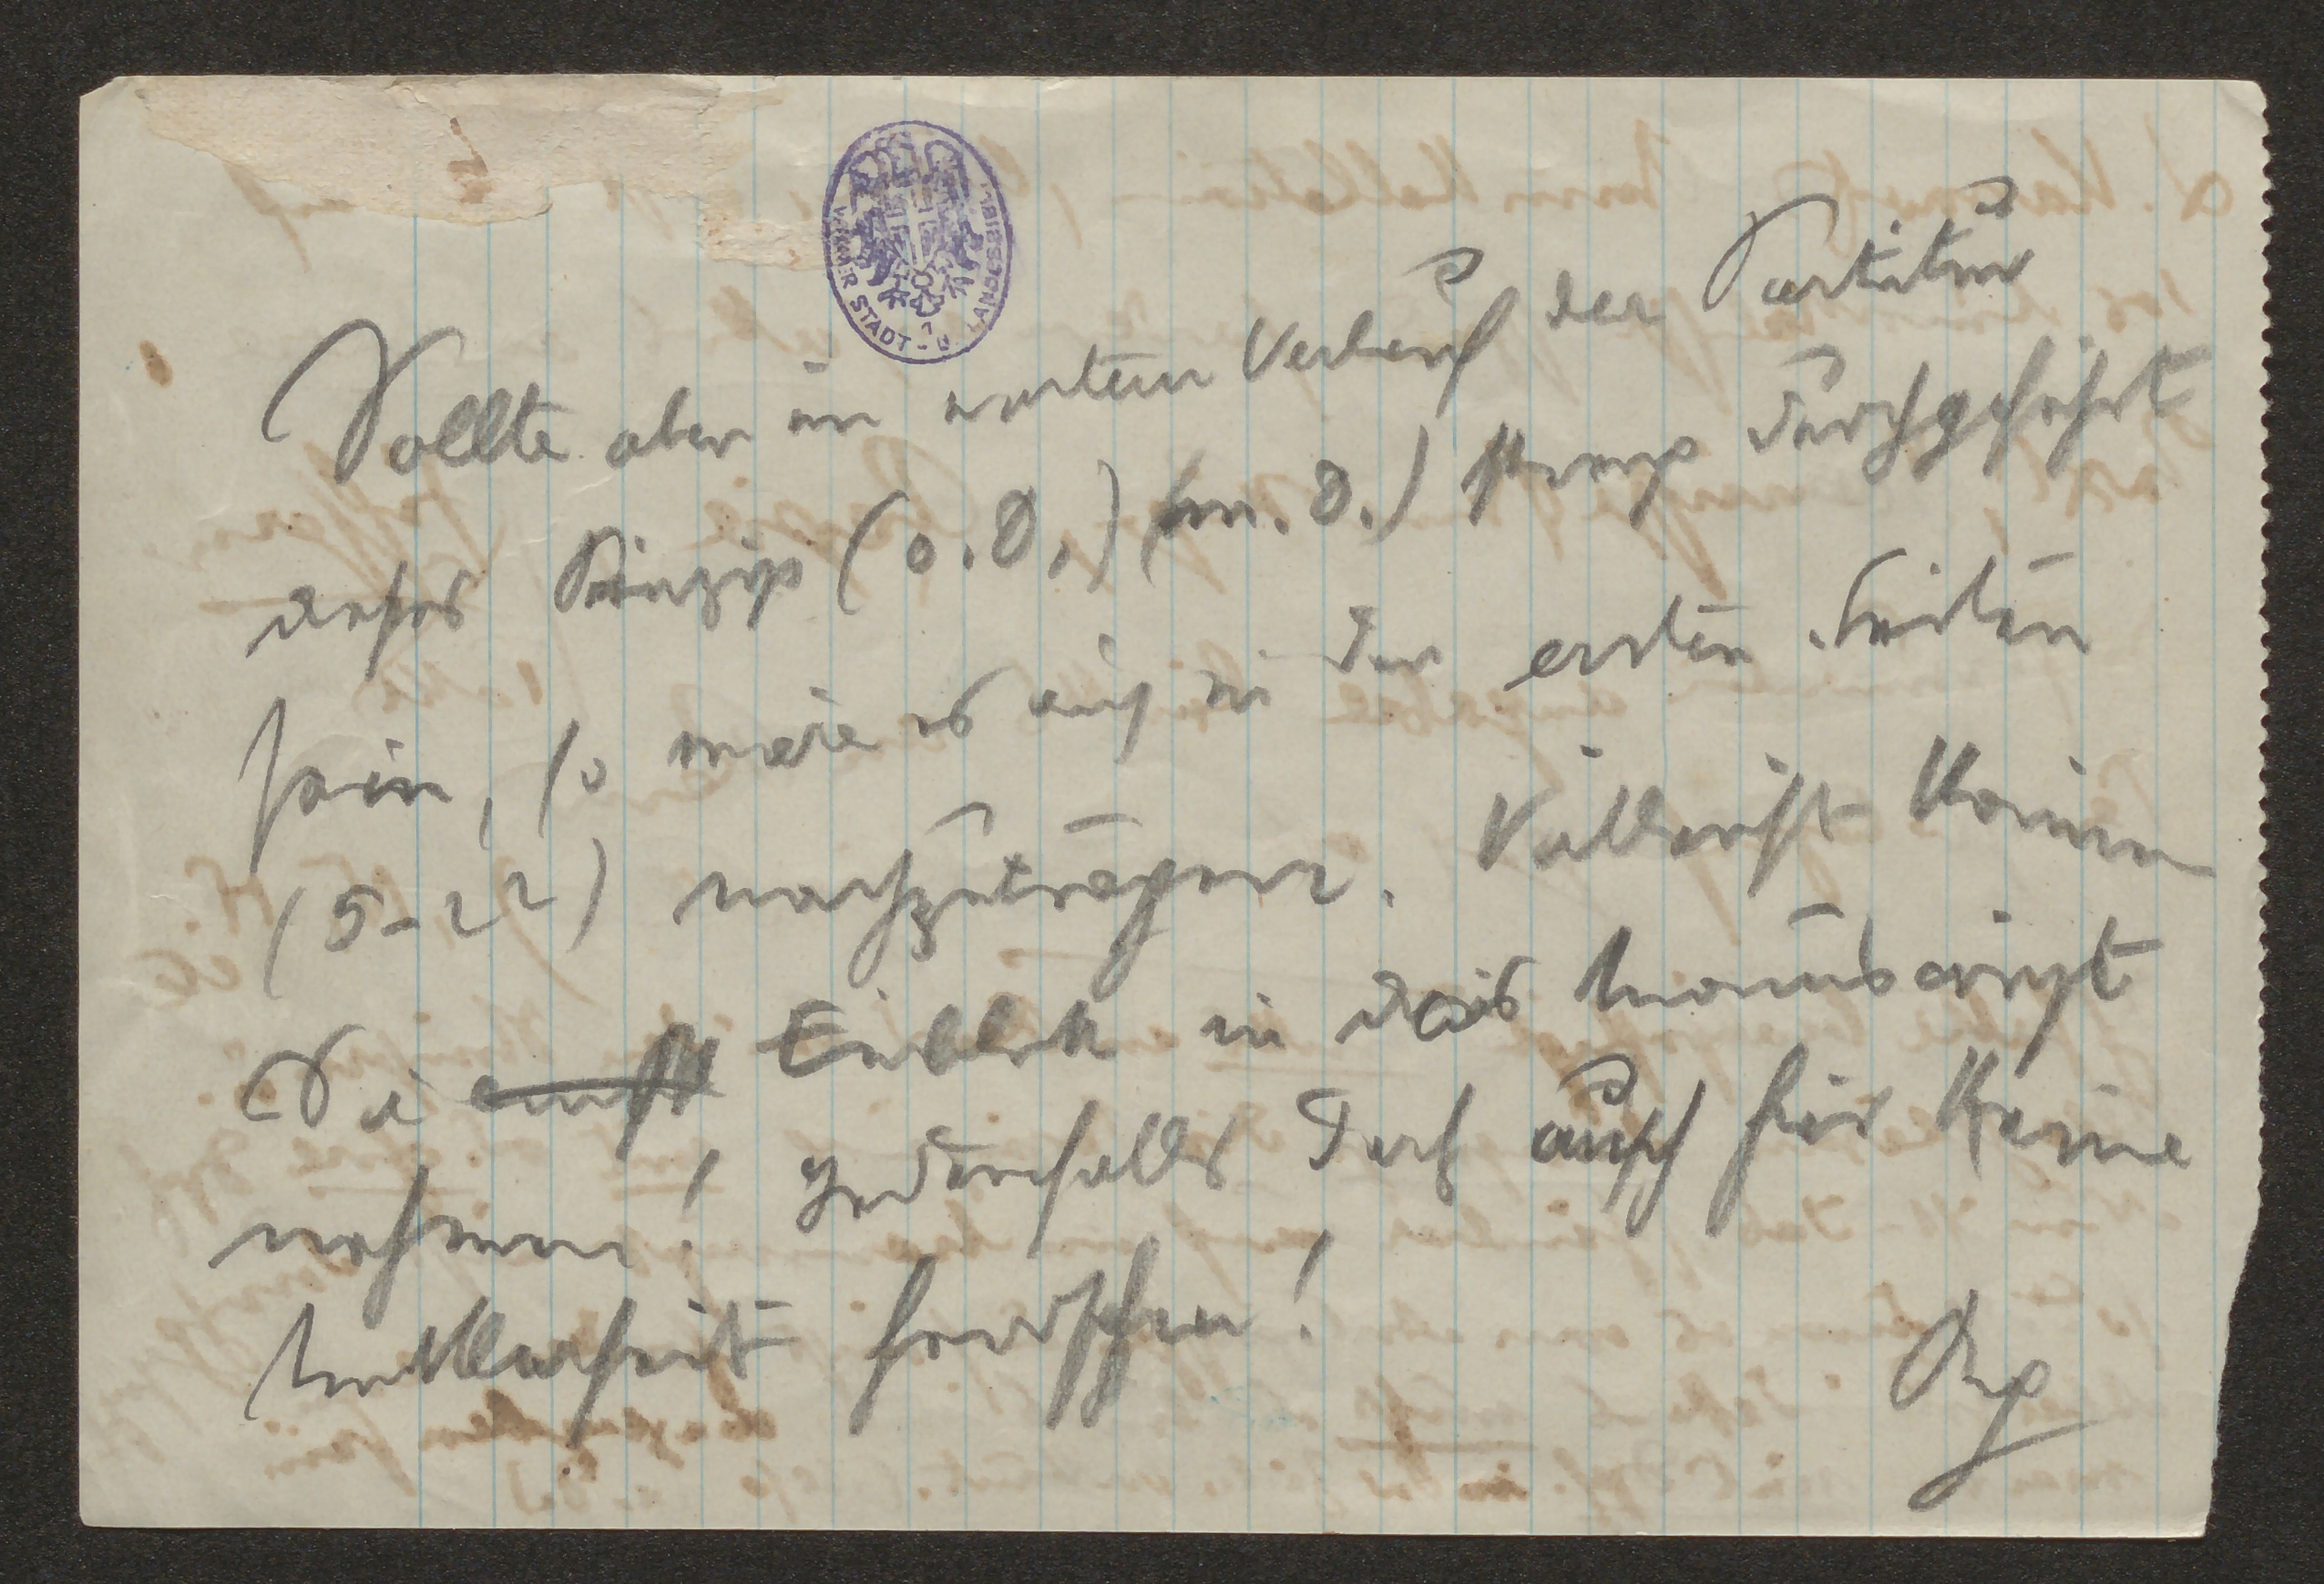 WIENER STADT - U. LANDESBIBL.
Sollte aber im weitern Verlauf der Partitur
dieses Prinzip (o. D.) (m. D.) streng durchgeführt
sein, so wäre es auch in den ersten Seiten
(5-22) nachzutragen. Vielleicht können
Sie Einblick in das Manuscript
nehmen! Jedenfalls darf auch hier keine
Unklarheit herrschen!